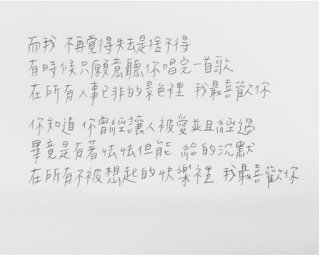 而我 不再覺得失去是捨不得
有時候只願意聽你唱完一首歌
在所有人事已非的景色裡 我最喜歡你
你知道 你曾經讓人被愛並且經過
畢竟是有著怯怯但能 給的沉默
在所有不被想起的快樂裡 我最喜歡你